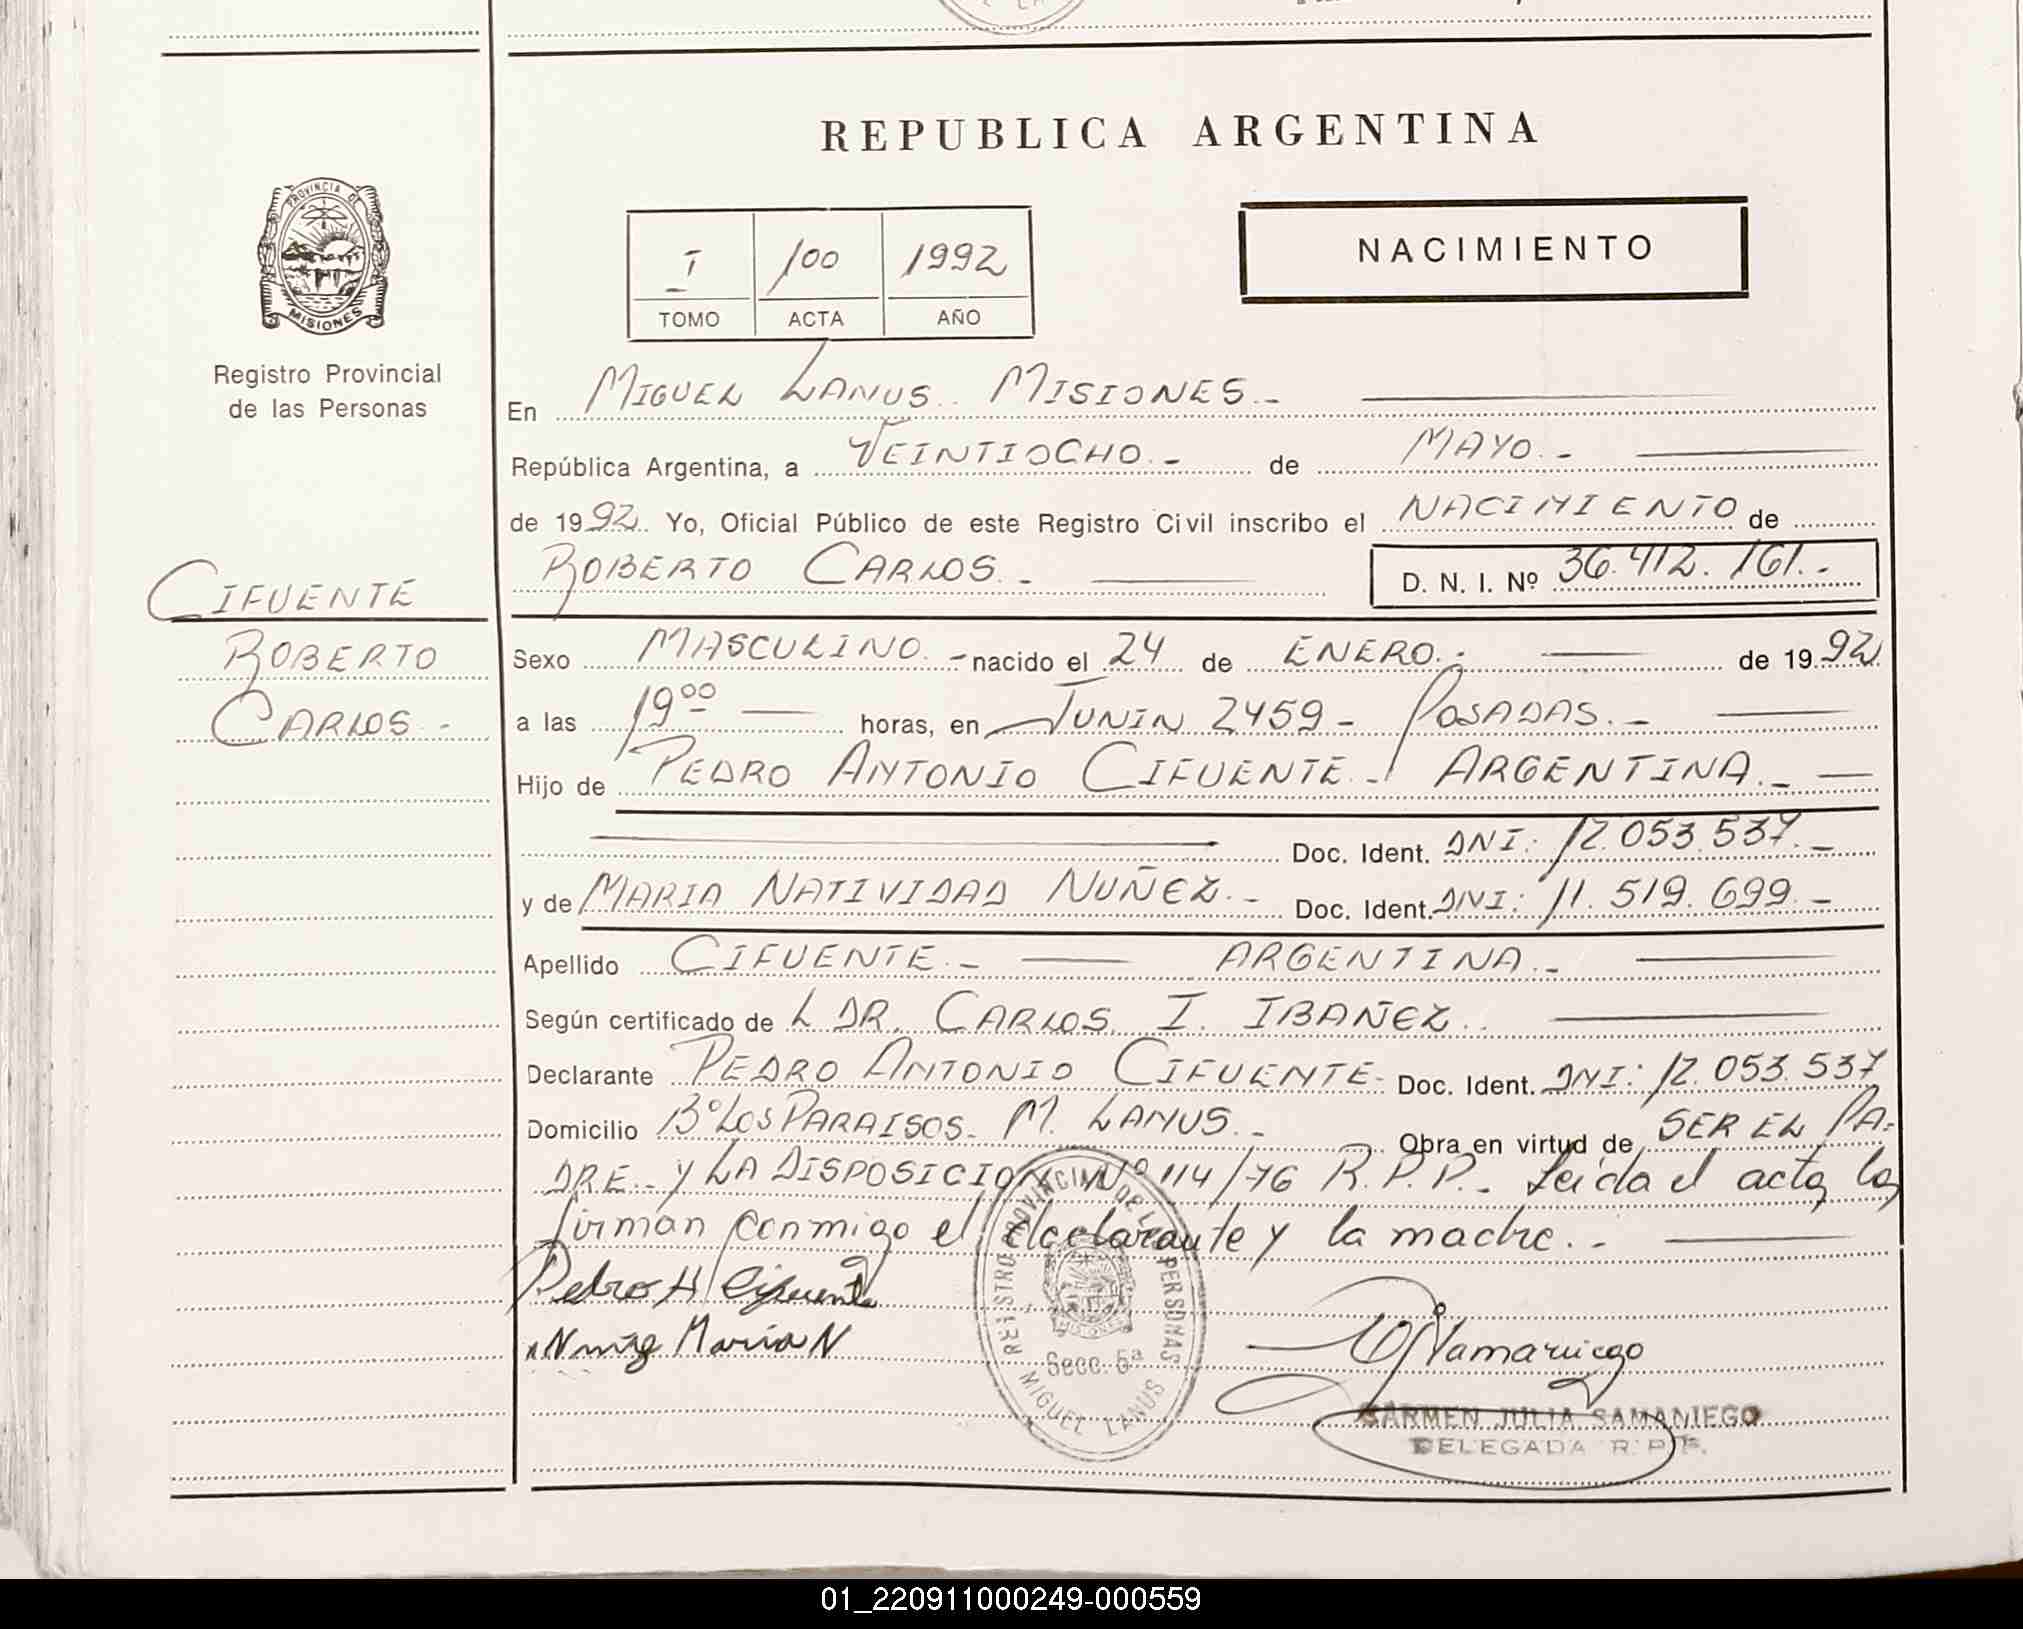 REPUBLICA ARGENTINA
PROVINCIA DE
MISIONES
Registro Provincial
de las Personas
I 100 1992
TOMO ACTA AÑO
NACIMIENTO
En MIGUEL LANUS. MISIONES.-
República Argentina, a VEINTIOCHO.- de MAYO.-
de 1992. Yo, Oficial Público de este Registro Civil inscribo el NACIMIENTO de
ROBERTO CARLOS.- D. N. I. Nº 36.412.161.-
CIFUENTE
ROBERTO
CARLOS.-
Sexo MASCULINO.- nacido el 24 de ENERO.- de 1992
a las 19⁰⁰ horas, en JUNIN 2459- POSADAS.-
Hijo de PEDRO ANTONIO CIFUENTE.- ARGENTINA.-
Doc. Ident. DNI: 12.053.537.-
y de MARIA NATIVIDAD NUÑEZ.- Doc. Ident. DNI: 11.519.699.-
Apellido CIFUENTE.- ARGENTINA.-
Según certificado de L DR. CARLOS I. IBAÑEZ.
Declarante PEDRO ANTONIO CIFUENTE- Doc. Ident. DNI: 12.053.537
Domicilio Bº LOS PARAISOS- M. LANUS.- Obra en virtud de SER EL PA-
DRE.- Y LA DISPOSICION Nº 114/76 R.P.P.- Leida el acta, la
firman conmigo el declarante y la madre.-
Pedro A Cifuente
Nuñez Maria N
REGISTRO PROVINCIAL DE LAS PERSONAS
MISIONES
Secc. 5ª
MIGUEL LANUS
CJSamaniego
CARMEN JULIA SAMANIEGO
DELEGADA R.P.P.
01_220911000249-000559